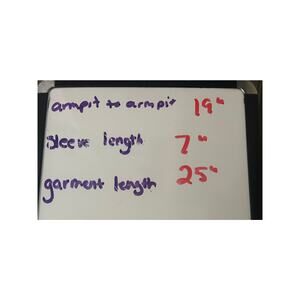 armpit to armpit 19"
sleeve length 7"
garment length 25"